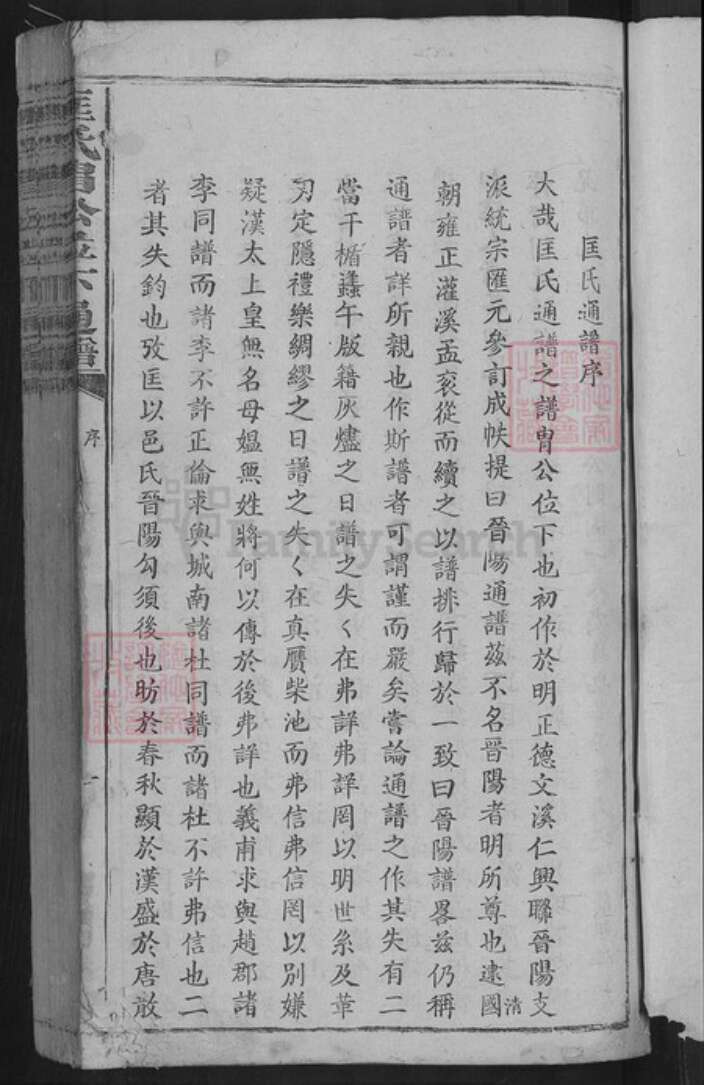 匡氏通譜序
大哉匡氏通譜之譜胄公位下也初作於明正德文溪仁興聯晉陽支
派統宗匯元參訂成帙提曰晉陽通譜茲不名晉陽者明所尊也逮國清
朝雍正灌溪孟衮從而續之以譜排行歸於一致曰晉陽譜畧茲仍稱
通譜者詳所親也作斯譜者可謂謹而嚴矣嘗論通譜之作其失有二
當干楯蠭午版籍灰燼之日譜之失〱在弗詳弗詳罔以明世系及革
刃定隱禮樂綢繆之日譜之失〱在真贋柴池而弗信弗信罔以別嫌
疑漢太上皇無名母媼無姓將何以傳於後弗詳也義甫求與趙郡諸
李同譜而諸李不許正倫求與城南諸杜同譜而諸杜不許弗信也二
者其失鈞也攷匡以邑氏晉陽勾須後也昉於春秋顯於漢盛於唐散
匡氏胄公位下通譜
序
一
FamilySearch